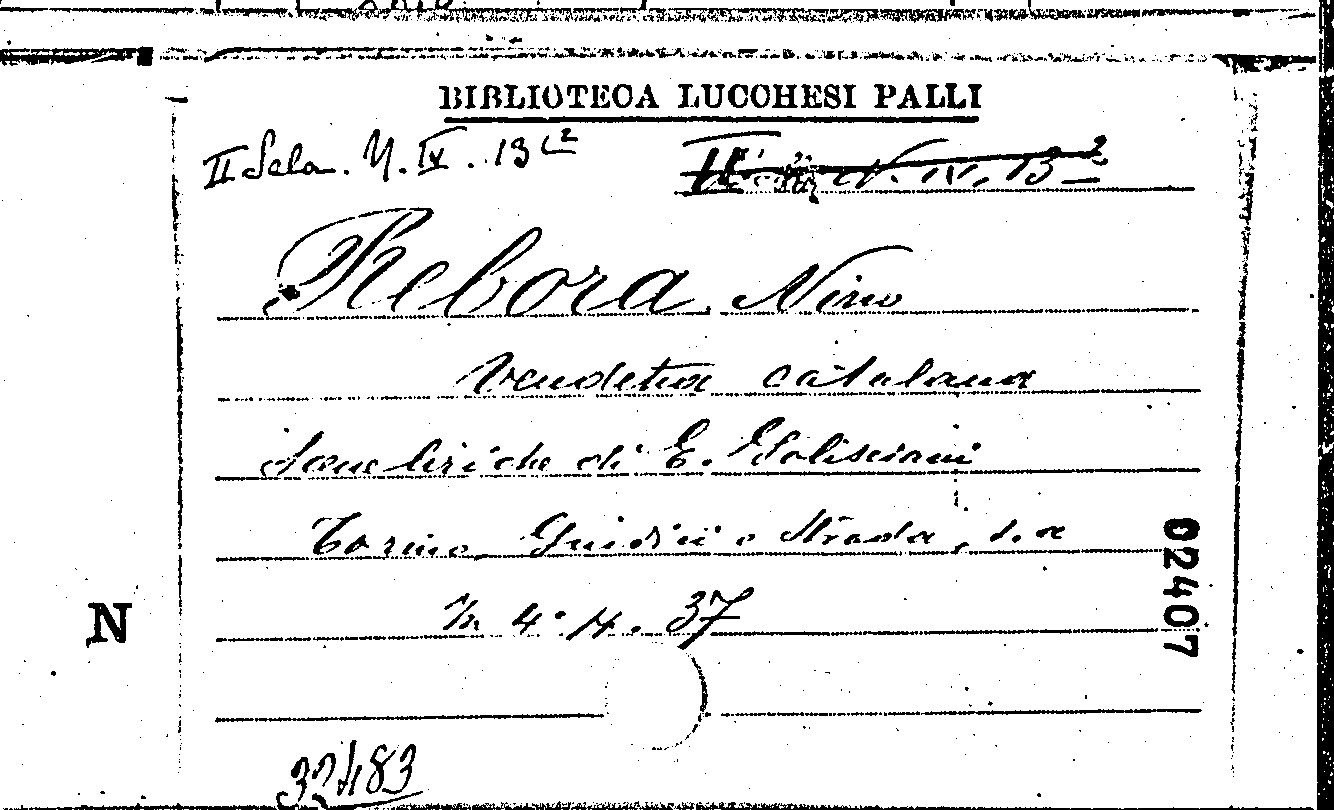 BIBLIOTECA LUCCHESI PALLI
II Sala. N. IV. 13 (2
N. IV. 13 2
Rebora, Nino
Vendetta catalana
Scene liriche di E. Golisciani
Torino, Giudici e Strada, s. a
In 4° p. 37
02407
N
32483